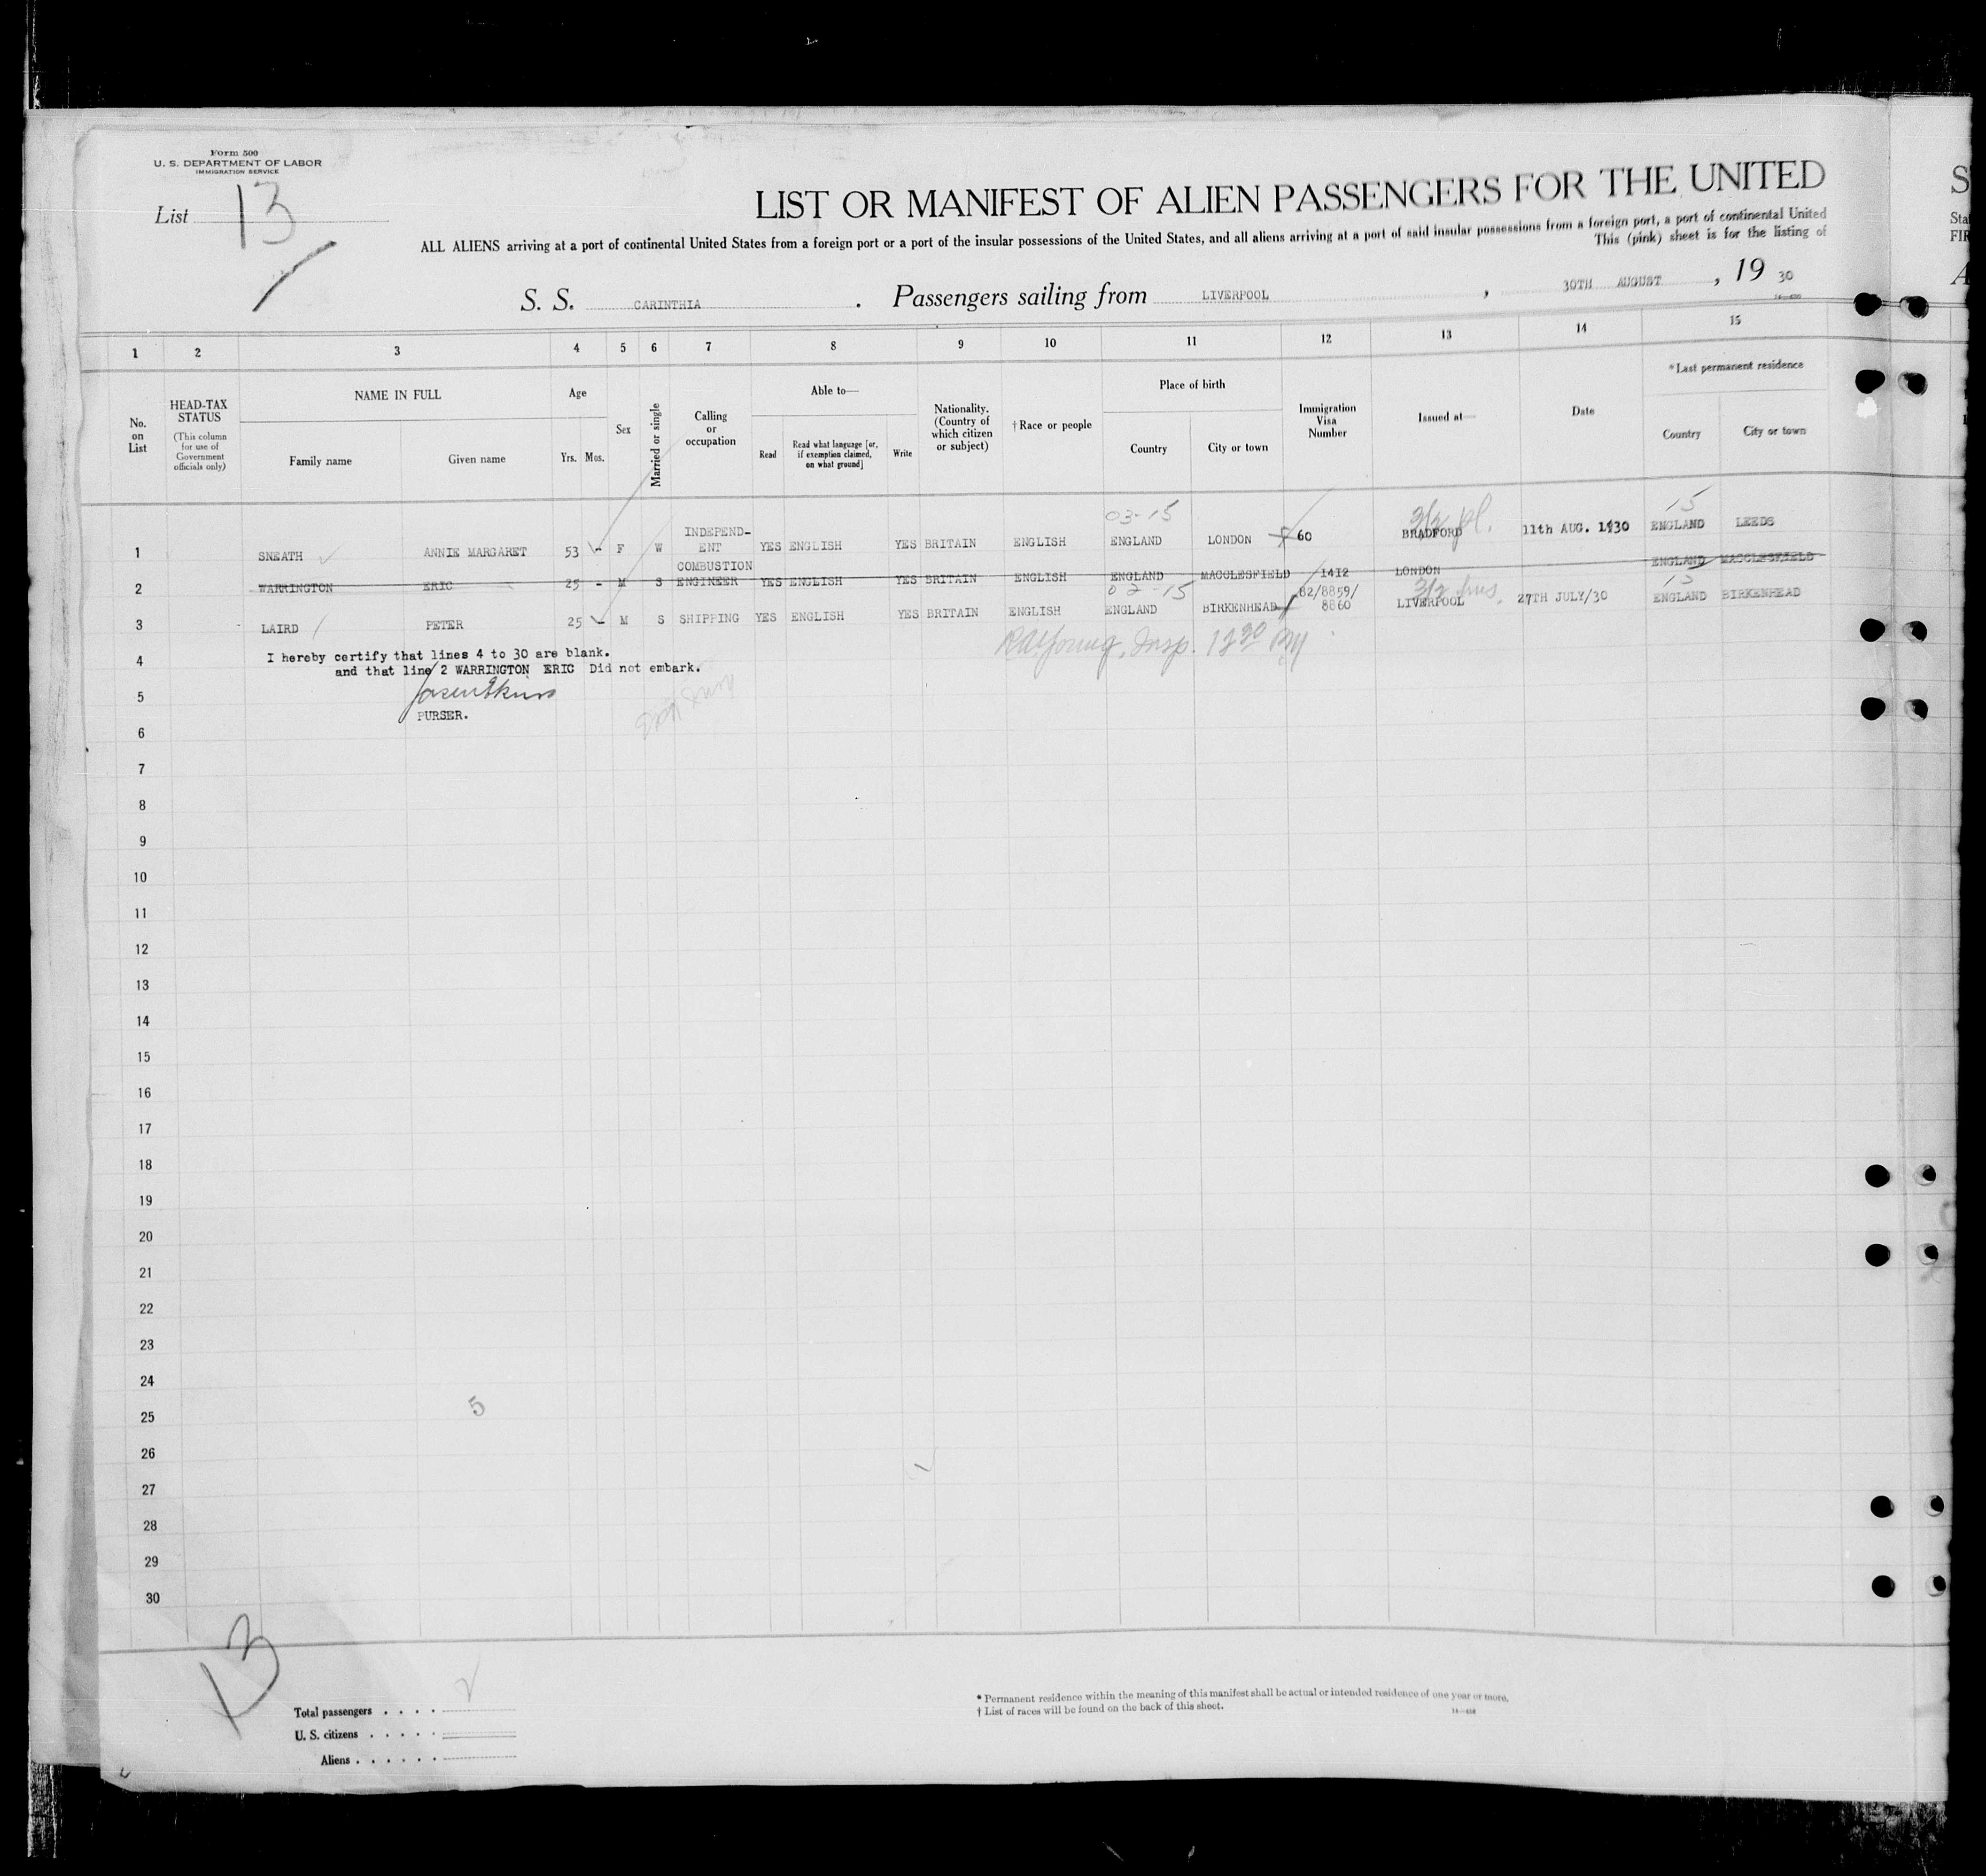 Form 500
U. S. DEPARTMENT OF LABOR
IMMIGRATION SERVICE
List 13
LIST OR MANIFEST OF ALIEN PASSENGERS FOR THE UNITED
ALL ALIENS arriving at a port of continental United States from a foreign port or a port of the insular possessions of the United States, and all aliens arriving at a port of said insular possessions from a foreign port, a port of continental United
This (pink) sheet is for the listing of
S. S. CARINTHIA . Passengers sailing from LIVERPOOL , 30TH AUGUST , 19 30
1 2 3 4 5 6 7 8 9 10 11 12 13 14 15
No. on List
HEAD-TAX STATUS
(This column for use of Government officials only)
NAME IN FULL
Family name Given name
Age
Yrs. Mos.
Sex
Married or single
Calling or occupation
Able to—
Read
Read what language [or, if exemption claimed, on what ground]
Write
Nationality. (Country of which citizen or subject)
†Race or people
Place of birth
Country City or town
Immigration Visa Number
Issued at—
Date
*Last permanent residence
Country City or town
03-15 15
1 SNEATH ANNIE MARGARET 53 - F W INDEPENDENT YES ENGLISH YES BRITAIN ENGLISH ENGLAND LONDON 60 BRADFORD 11th AUG. 1930 ENGLAND LEEDS
2 WARRINGTON ERIC 25 - M S COMBUSTION ENGINEER YES ENGLISH YES BRITAIN ENGLISH ENGLAND MACCLESFIELD 1412 LONDON ENGLAND MACCLESFIELD
02-15 15
3 LAIRD PETER 25 - M S SHIPPING YES ENGLISH YES BRITAIN ENGLISH ENGLAND BIRKENHEAD 82/8859/8860 LIVERPOOL 27TH JULY/30 ENGLAND BIRKENHEAD
4 I hereby certify that lines 4 to 30 are blank.
and that line 2 WARRINGTON ERIC Did not embark.
5
PURSER.
6
7
8
9
10
11
12
13
14
15
16
17
18
19
20
21
22
23
24
25 5
26
27
28
29
30
13
Total passengers . . . .
U. S. citizens . . . . .
Aliens . . . . . .
* Permanent residence within the meaning of this manifest shall be actual or intended residence of one year or more.
† List of races will be found on the back of this sheet.